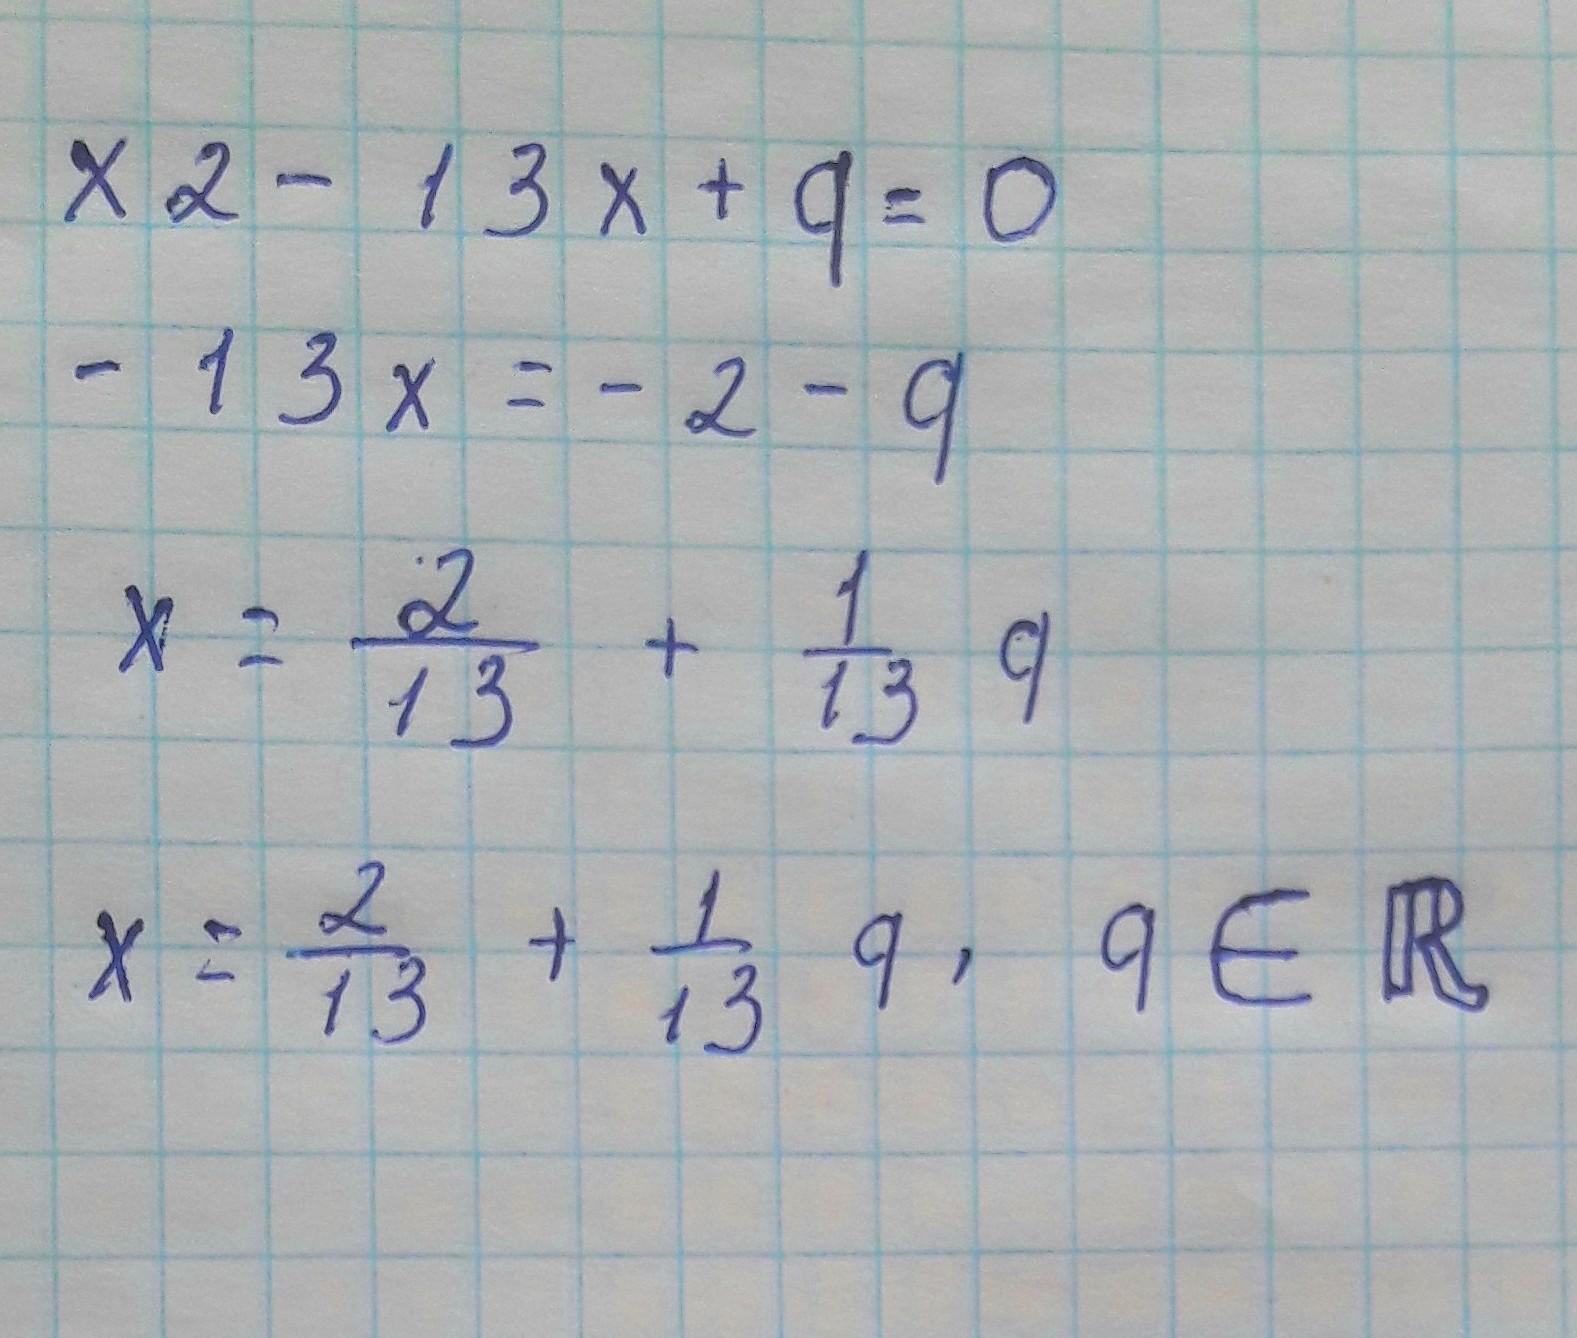 x 2 - 13x + q = 0
- 13x = - 2 - q
x = 2/13 + 1/13 q
x = 2/13 + 1/13 q, q ∈ ℝ